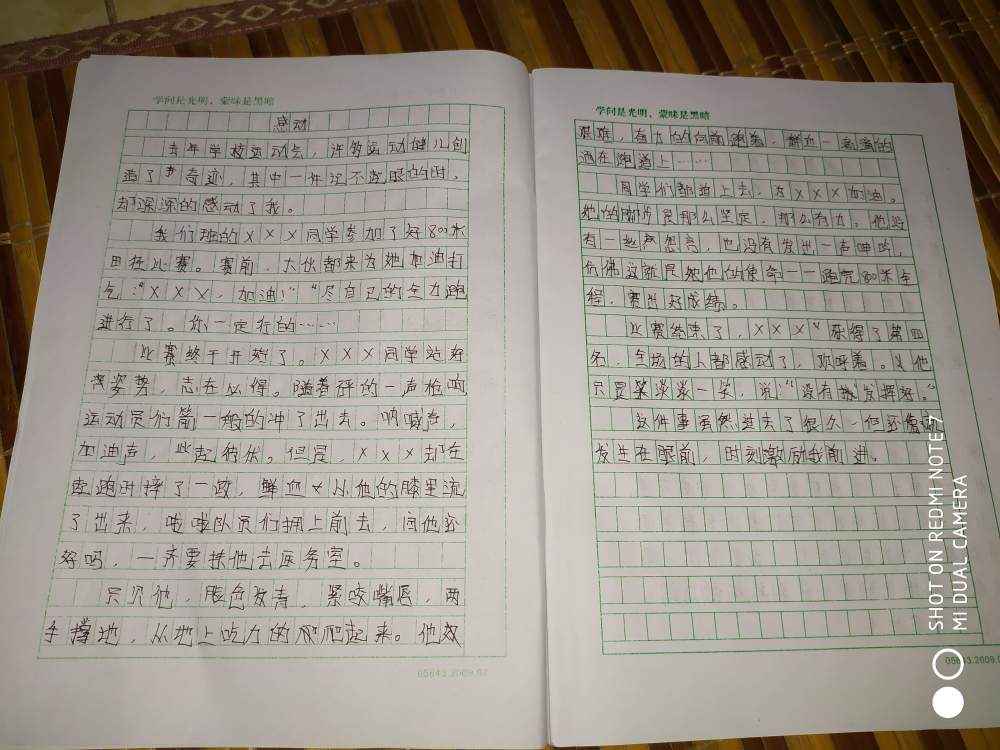 学问是光明，蒙昧是黑暗
感动
去年学校运动会，许多运动健儿创
造了奇迹，其中一件记不起眼的时，
却深深的感动了我。
我们班的XXX同学参加了好800米
田径比赛。赛前，大伙都来为她加油打
气："XXX，加油！""尽自己的全力跑
进行了。你一定行的……
比赛终于开始了。XXX同学站好
姿势，志在必得。随着砰的一声枪响
运动员们箭一般的冲了出去。呐喊声，
加油声，此起彼伏。但是，XXX却在
起跑时摔了一跤，鲜血从他的膝里流
了出来，啦啦队员们拥上前去，问他还
好吗，一齐要扶他去医务室。
只见他，脸色发青，紧咬嘴唇，两
手撑地，从地上吃力的爬起来。他
05643.2009.07
学问是光明，蒙昧是黑暗
艰难，有力的向前跑着，鲜血一滴滴的
洒在跑道上……
同学们都追上去，为XXX加油。
她的脚步是那么坚定，那么有力，他没
有一起怨言，也没有发出一声呻吟，
仿佛这就是他的使命——跑完800米全
程，赛出好成绩。
比赛结束了，XXX获得了第四
名，全场的人都感动了，欢呼着。只他
只是淡淡一笑，说："没有发挥好。"
这件事虽然过去了很久，但还像
发生在眼前，时刻激励我前进。
05643.2009.0
SHOT ON REDMI NOTE 7
MI DUAL CAMERA